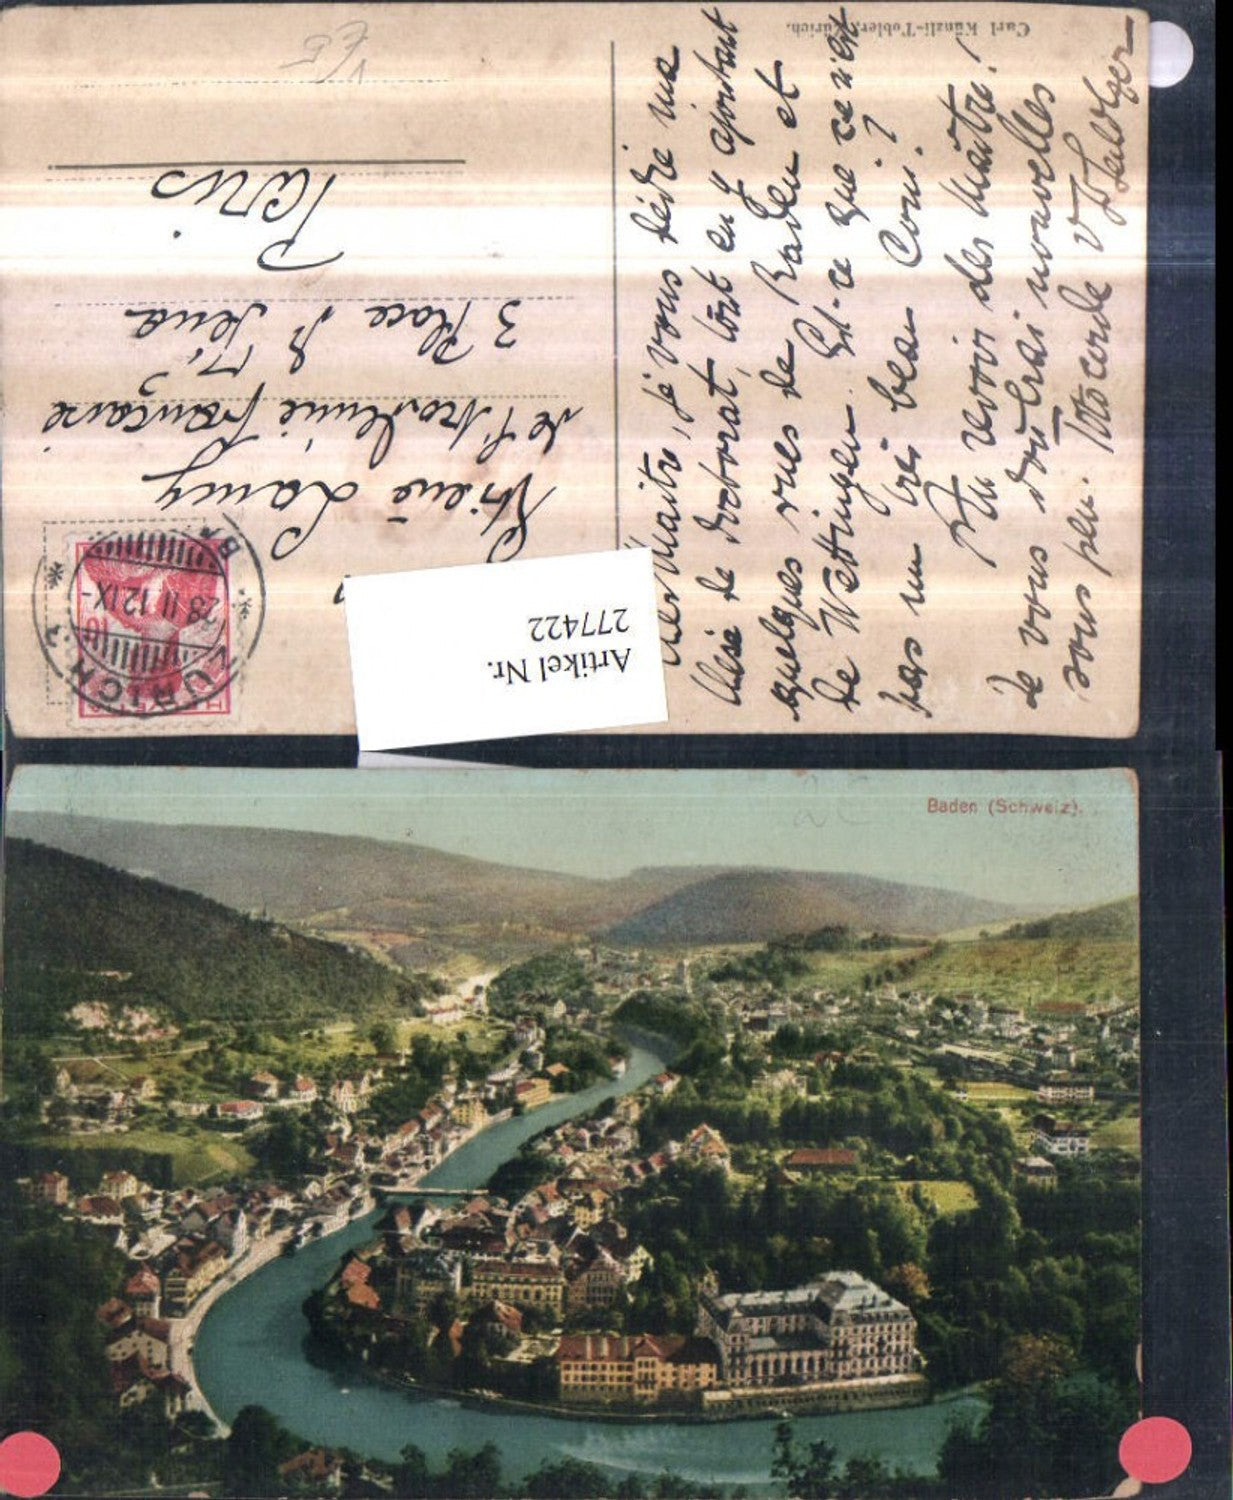 Carl Künzli-Tobler, Zürich.
Cher Maître, Je vous dédie ma
thèse de doctorat, tout en y ajoutant
quelques vues de Baden et
de Wettingen. Est-ce que ce n'est
pas un très beau Coin?
Au revoir cher Maître!
Je vous voudrai nouvelles
sous peu.
Pierre Lancy
de l'Académie française
3 Place d'Iéna
Paris
ZÜRICH
28 II 12 IX-
10
Artikel Nr.
277422
Baden (Schweiz).